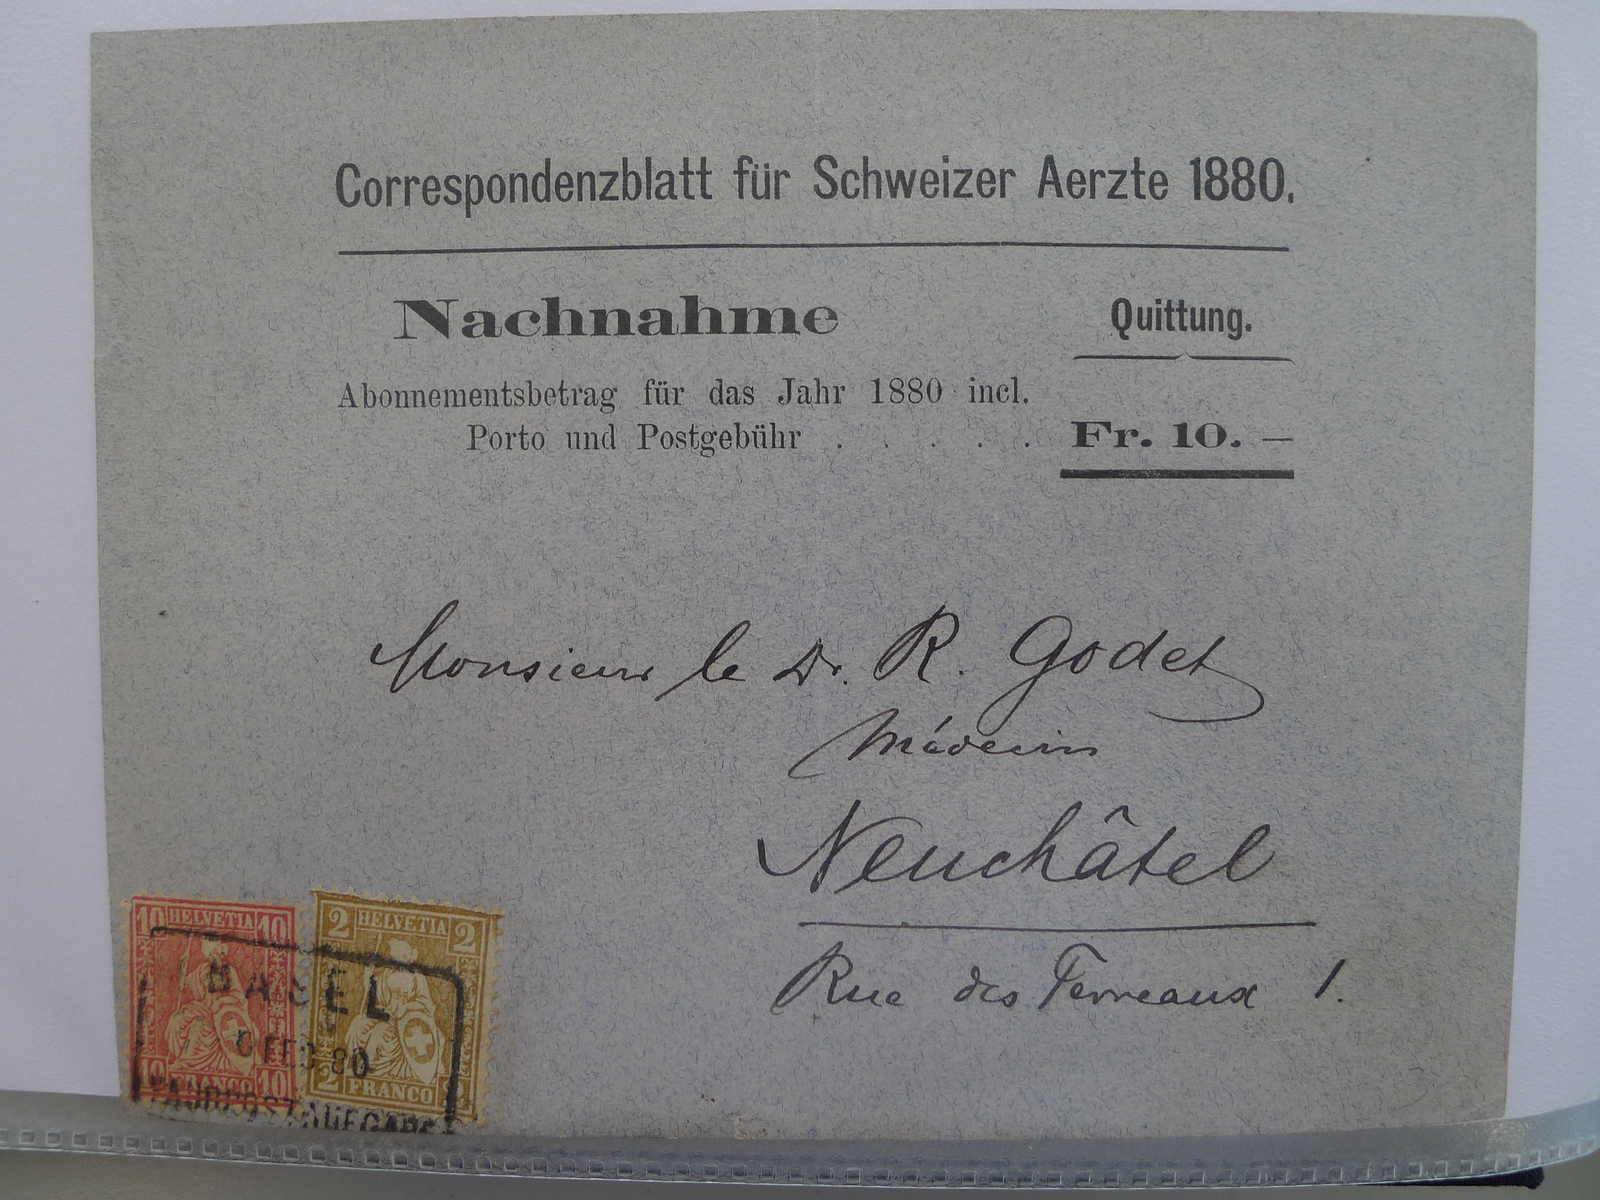 Correspondenzblatt für Schweizer Aerzte 1880.
Nachnahme
Quittung.
Abonnementsbetrag für das Jahr 1880 incl.
Porto und Postgebühr . . . . . Fr. 10. —
Monsieur le Dr. R. Godet
Médecin
Neuchâtel
Rue des Terreaux 1.
10 HELVETIA 10
2 HELVETIA 2
BASEL
FEB. 80
10 FRANCO 10
2 FRANCO